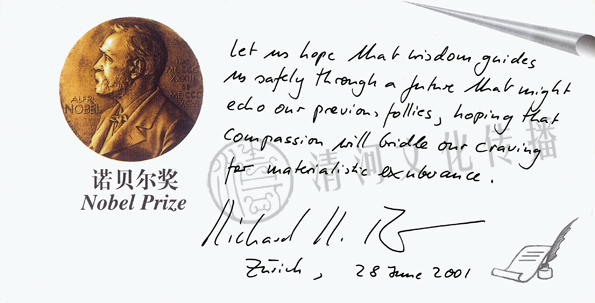 ALFR.
NOBEL
诺贝尔奖
Nobel Prize
Let us hope that wisdom guides
us safely through a future that might
echo our previous follies, hoping that
compassion will bridle our craving
for materialistic exuberance.
清河文化传播
Richard R.
Zürich, 28 June 2001